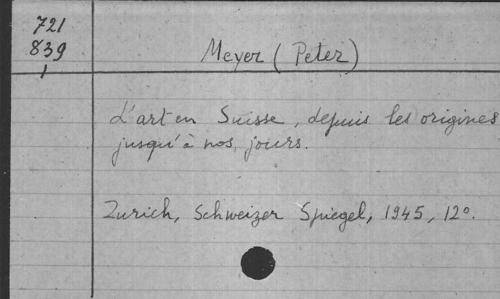 721
839
1
Meyer (Peter)
L'art en Suisse, depuis les origines
jusqu'à nos jours.
Zurich, Schweizer Spiegel, 1945, 12°.